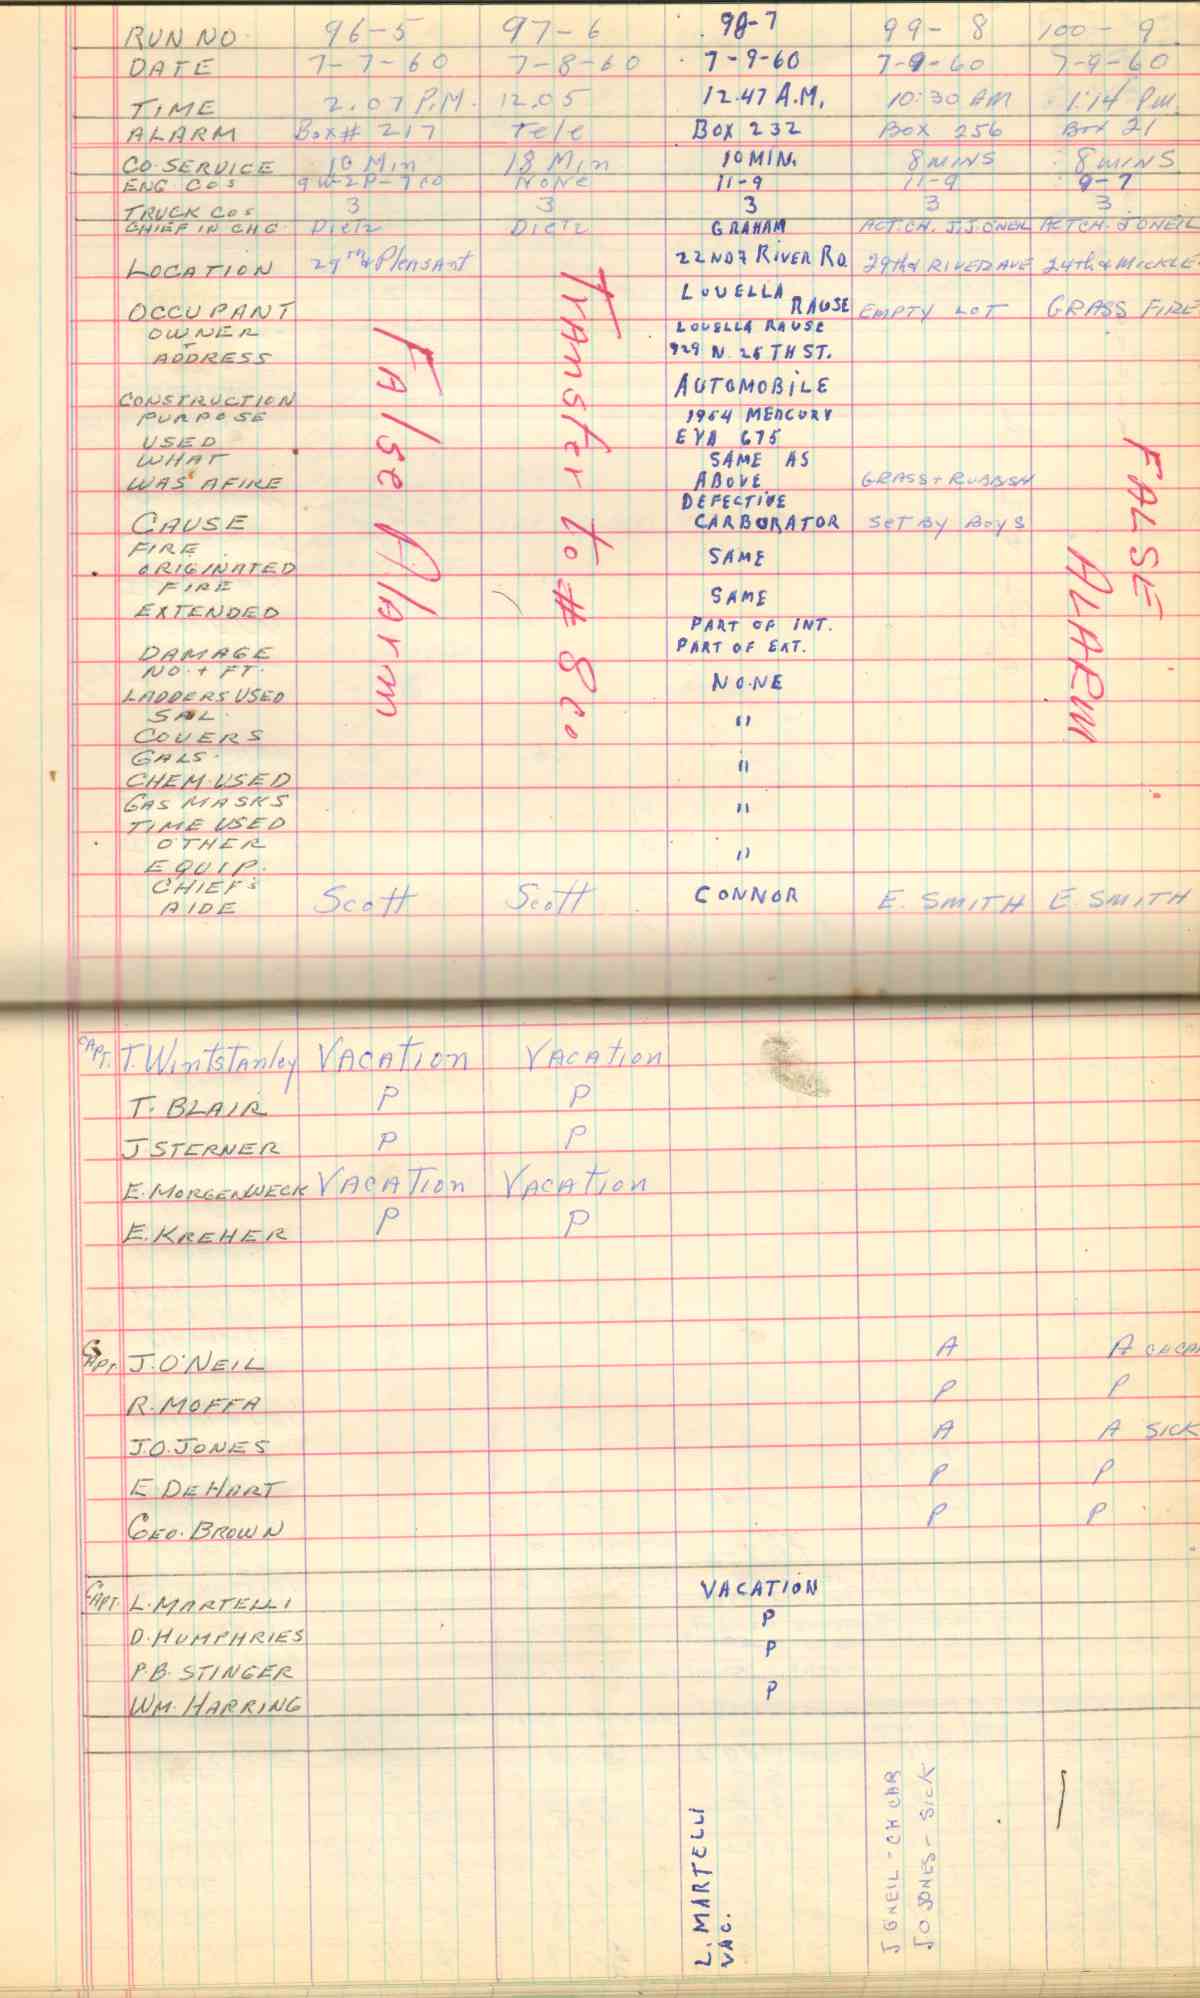 RUN NO. 96-5 97-6 98-7 99-8 100-9
DATE 7-7-60 7-8-60 7-9-60 7-9-60 7-9-60
TIME 2.07 P.M. 12.05 12.47 A.M. 10:30 AM 1:14 PM.
ALARM Box# 217 Tele BOX 232 BOX 256 BOX 21
CO. SERVICE 10 Min 18 Min 10 MIN. 8 MINS 8 MINS
ENG. COS NONE 11-9 11-9 9-7
TRUCK COS 3 3 3 3 3
CHIEF IN CHG. Dietz Dietz GRAHAM ACT. CH. J.J. ONEIL ACT CH. J ONEIL
LOCATION 29TH & Pleasant 22ND & RIVER RD. 29TH & RIVER AVE 24TH & MICKLE
OCCUPANT LOUELLA RAUSE EMPTY LOT GRASS FIRE
OWNER LOUELLA RAUSE
+
ADDRESS 929 N. 26TH ST.
CONSTRUCTION AUTOMOBILE
PURPOSE 1954 MERCURY
USED EVA 675
WHAT SAME AS
WAS AFIRE ABOVE GRASS + RUBBISH
DEFECTIVE
CAUSE CARBORATOR SET BY BOYS
FIRE
ORIGINATED SAME
FIRE
EXTENDED SAME
PART OF INT.
DAMAGE PART OF EXT.
NO. + FT.
LADDERS USED NONE
SAL.
COVERS "
GALS.
CHEM. USED "
GAS MASKS
TIME USED "
OTHER
EQUIP. "
CHIEFS
AIDE Scott Scott CONNOR E. SMITH E SMITH
False Alarm
Transfer to # 8 co
FALSE
ALARM
CAPT. T. Wintstanley VACATION VACATION
T. BLAIR P P
J STERNER P P
E. MORGENWECK VACATION VACATION
E. KREHER P P
CAPT. J. O'NEIL A A CHCAR
R. MOFFA P P
J.O. JONES A A SICK
E DEHART P P
GEO. BROWN P P
CAPT. L. MARTELLI VACATION
D. HUMPHRIES P
P.B. STINGER P
WM. HARRING P
L. MARTELLI
VAC.
J ONEIL - CH CAR
J O JONES - SICK